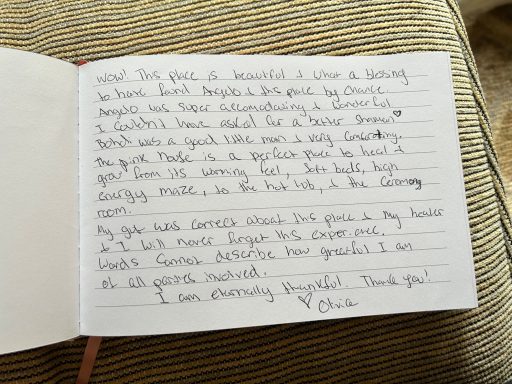 Wow! This place is beautiful & what a blessing
to have found Angelo & this place by chance.
Angelo was super accomodating & wonderful
I couldn't have asked for a better shaman ♡
Bohdi was a good little man & very comforting.
The pink house is a perfect place to heal &
grow from its warming feel, soft beds, high
energy maze, to the hot tub, & the ceremony
room.
My gut was correct about this place & my healer
& I will never forget this experience.
Words cannot describe how greatful I am
of all parties involved.
I am eternally thankful. Thank you!
♡